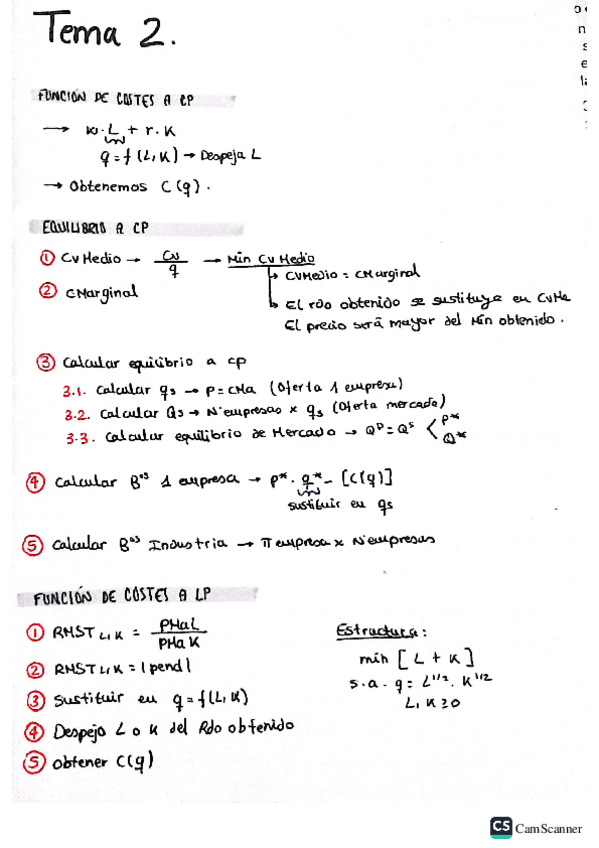 Tema 2.
FUNCIÓN DE COSTES A CP
→ w·L + r·K
q = f(L,K) → Despeja L
→ Obtenemos C(q).
EQUILIBRIO A CP
① CVMedio → CV/q → Min CV Medio
→ CVMedio = CMarginal
② CMarginal
→ El rdo obtenido se sustituye en CVMe
El precio será mayor del Min obtenido.
③ Calcular equilibrio a cp
3.1. Calcular qs → P = CMa (Oferta 1 empresa)
3.2. Calcular Qs → N'empresas x qs (Oferta mercado)
3.3. Calcular equilibrio de Mercado → Q^D = Q^S < P* Q*
④ Calcular B^os 1 empresa → p*·q* - [C(q)]
sustituir en qs
⑤ Calcular B^os Industria → π empresa x N'empresas
FUNCIÓN DE COSTES A LP
① RMST L,K = PMaL/PMaK
② RMST L,K = |pend|
③ Sustituir en q = f(L,K)
④ Despejo L o K del Rdo obtenido
⑤ obtener C(q)
Estructura:
min [L + K]
s.a. q = L^1/2 · K^1/2
L, K ≥ 0
CS CamScanner